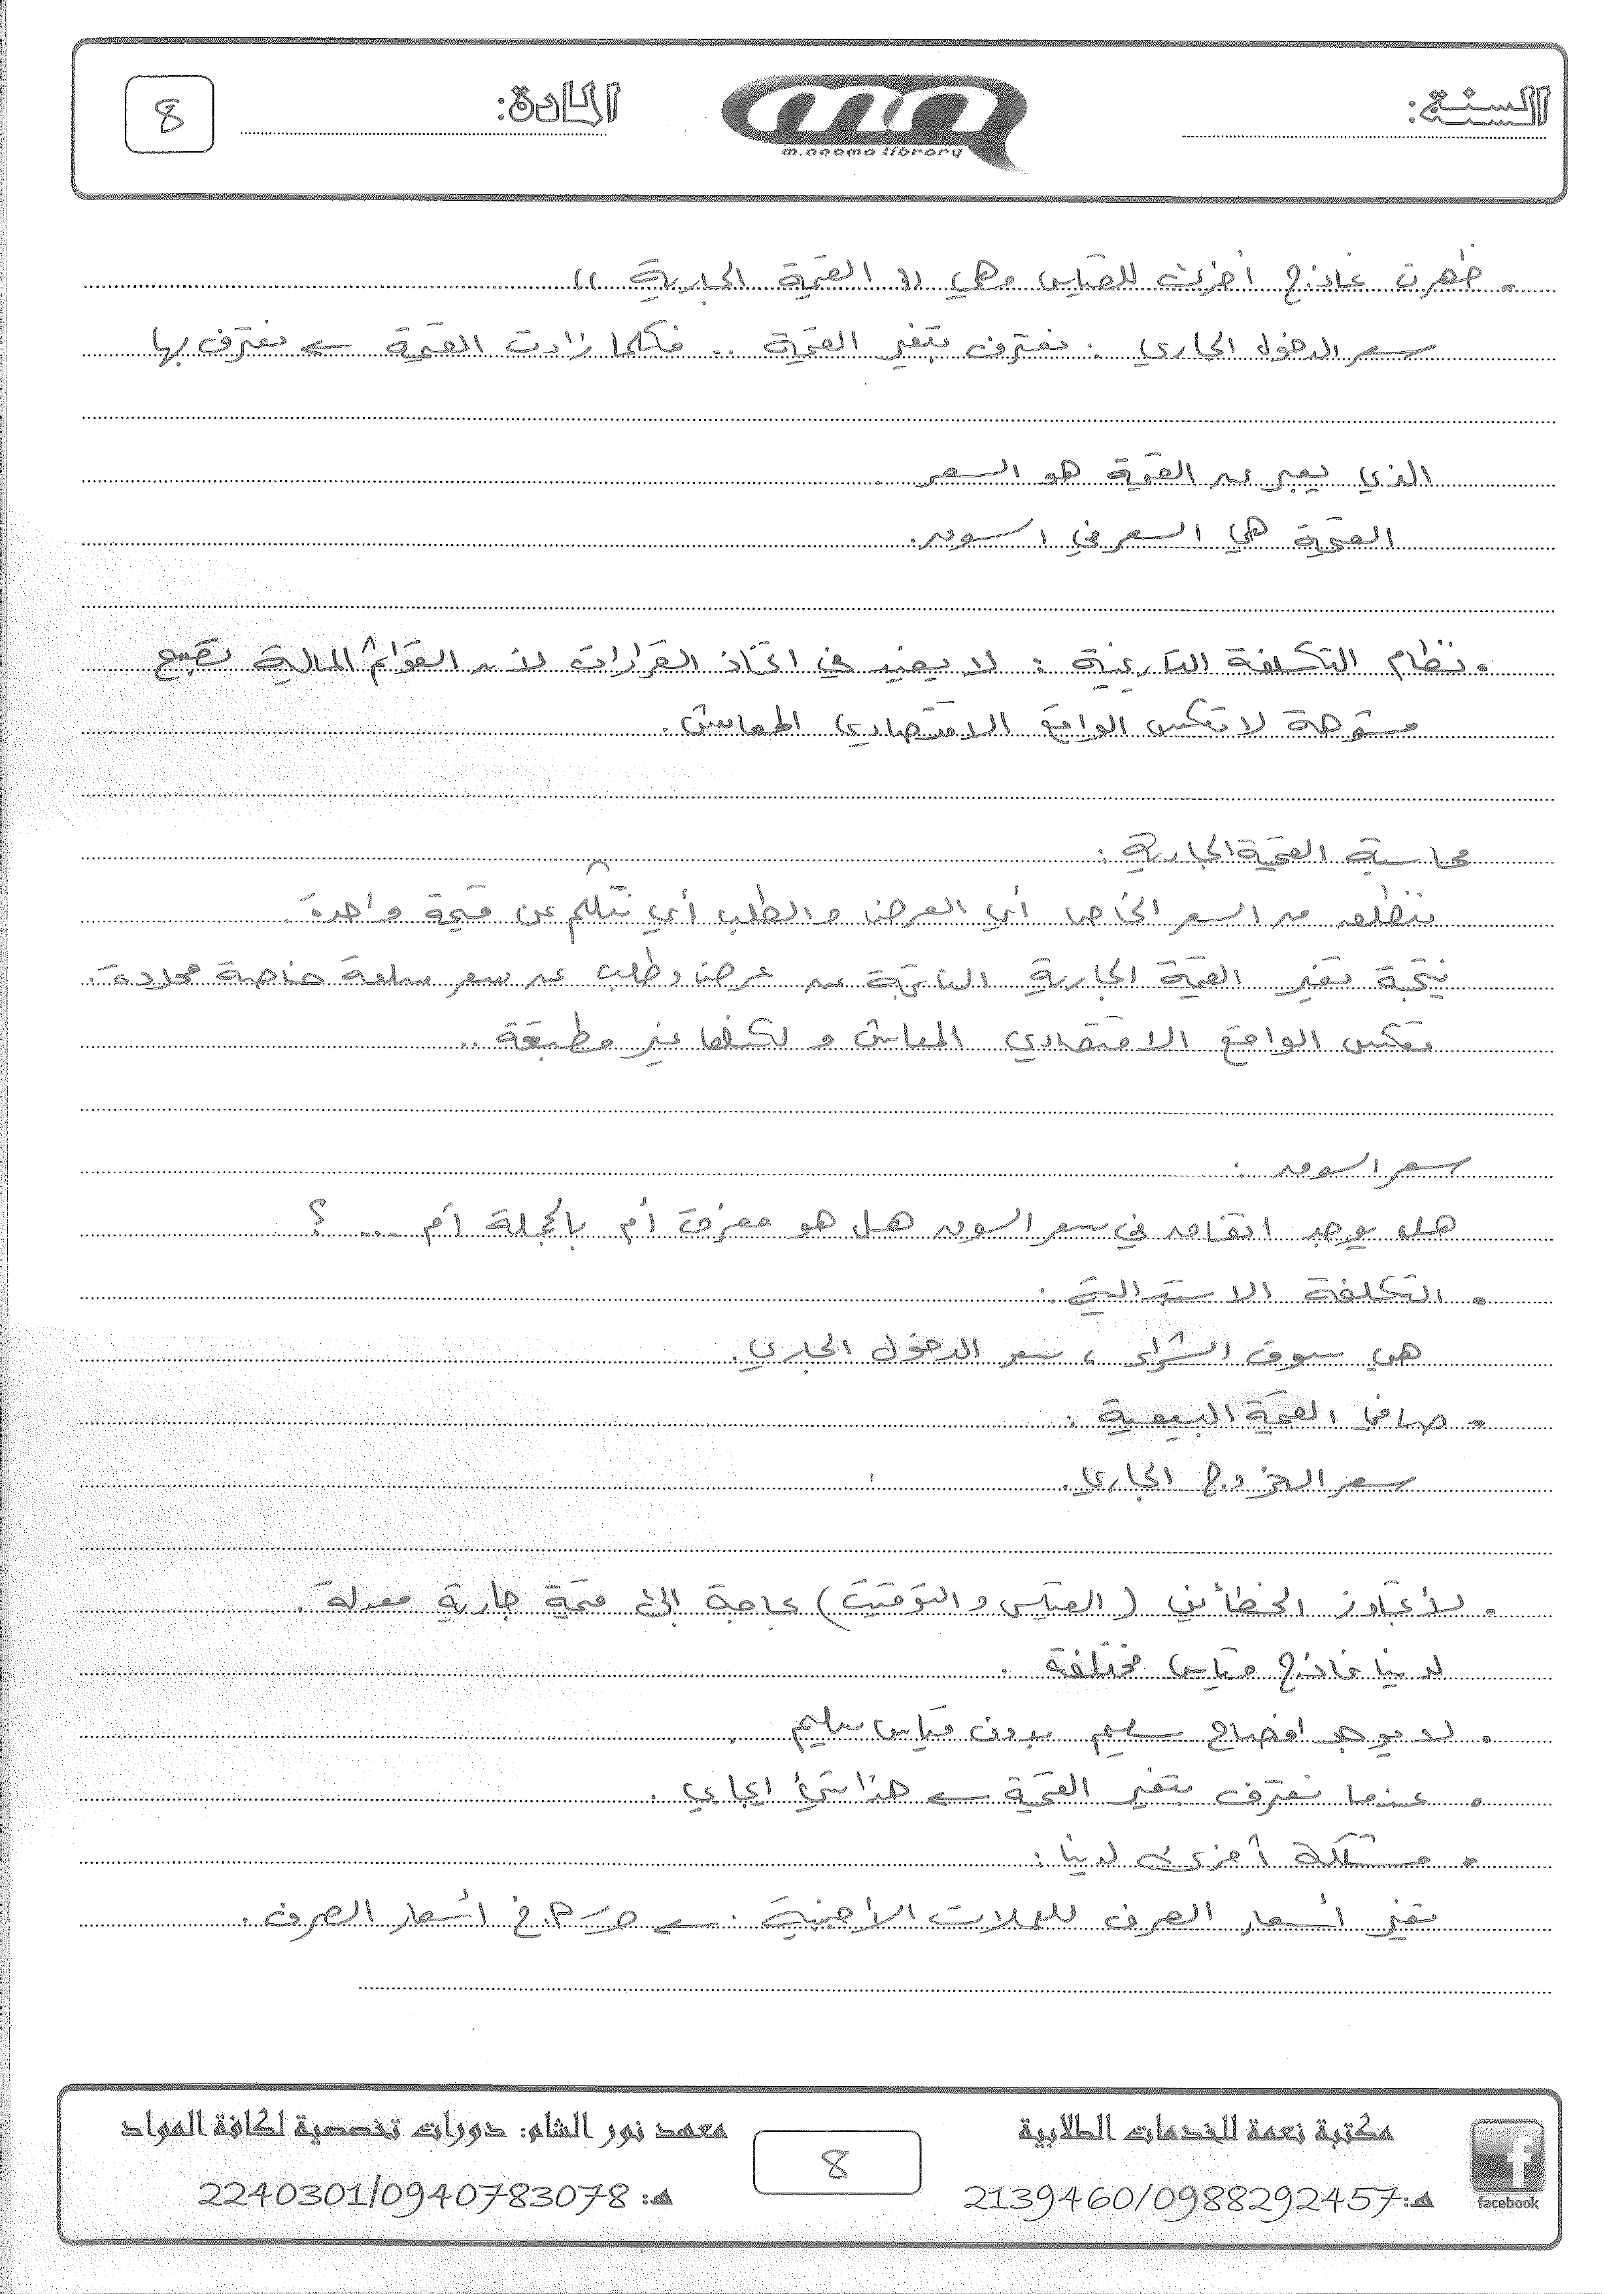 السنة:
m.neama library
المادة:
8
• ظهرت نماذج أخرى للقياس وهي (( القيمة الجارية ))
سعر الدخول الجاري : نعترف بتغير القيمة .. فكلما زادت القيمة ← نعترف بها
الذي يعبر عن القيمة هو السعر .
القيمة هي السعر في السوق.
• نظام التكلفة التاريخية : لا يفيد في اتخاذ القرارات لأن القوائم المالية تصبح
مشوهة لا تعكس الواقع الاقتصادي المعاش .
محاسبة القيمة الجارية :
تنطلق من السعر الخاص أي العرض والطلب أي نتكلم عن قيمة واحدة .
نتيجة تغير القيمة الجارية الناتجة عن عرض وطلب عن سعر سلعة خاصة محددة .
تعكس الواقع الاقتصادي المعاش و لكنها غير مطبقة ..
سعر السوق :
هل يوجد اتفاق في سعر السوق هل هو مفرق أم بالجملة أم .... ؟
• التكلفة الاستبدالية :
هي سوق الشراء ، سعر الدخول الجاري .
• صافي القيمة البيعية :
سعر الخروج الجاري .
• لأتجاوز الخطأين ( القياس والتوقيت ) بحاجة إلى قيمة جارية معدلة .
لدينا نماذج قياس مختلفة .
• لا يوجد افصاح سليم بدون قياس سليم .
• عندما نعترف بتغير القيمة ← هذا شيء ايجابي .
• مشكلة أخرى لدينا :
تغير أسعار الصرف للعملات الأجنبية . ← أسعار الصرف .
facebook
مكتبة نعمة للخدمات الطلابية
هـ: 2139460/0988292457
8
معهد نور الشام: دورات تخصصية لكافة المواد
هـ: 2240301/0940783078